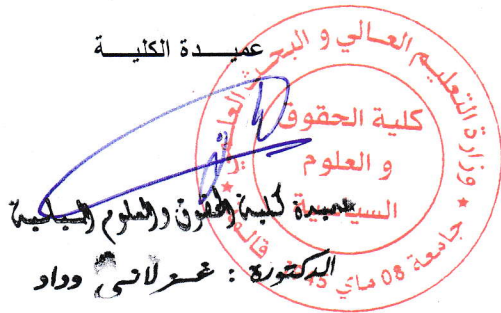 عميدة الكلية
وزارة التعليم العالي و البحث العلمي
كلية الحقوق
و العلوم
السياسية
جامعة 08 ماي 45 قالمة
عميدة كلية الحقوق والعلوم السياسية
الدكتورة : غزلاني وداد